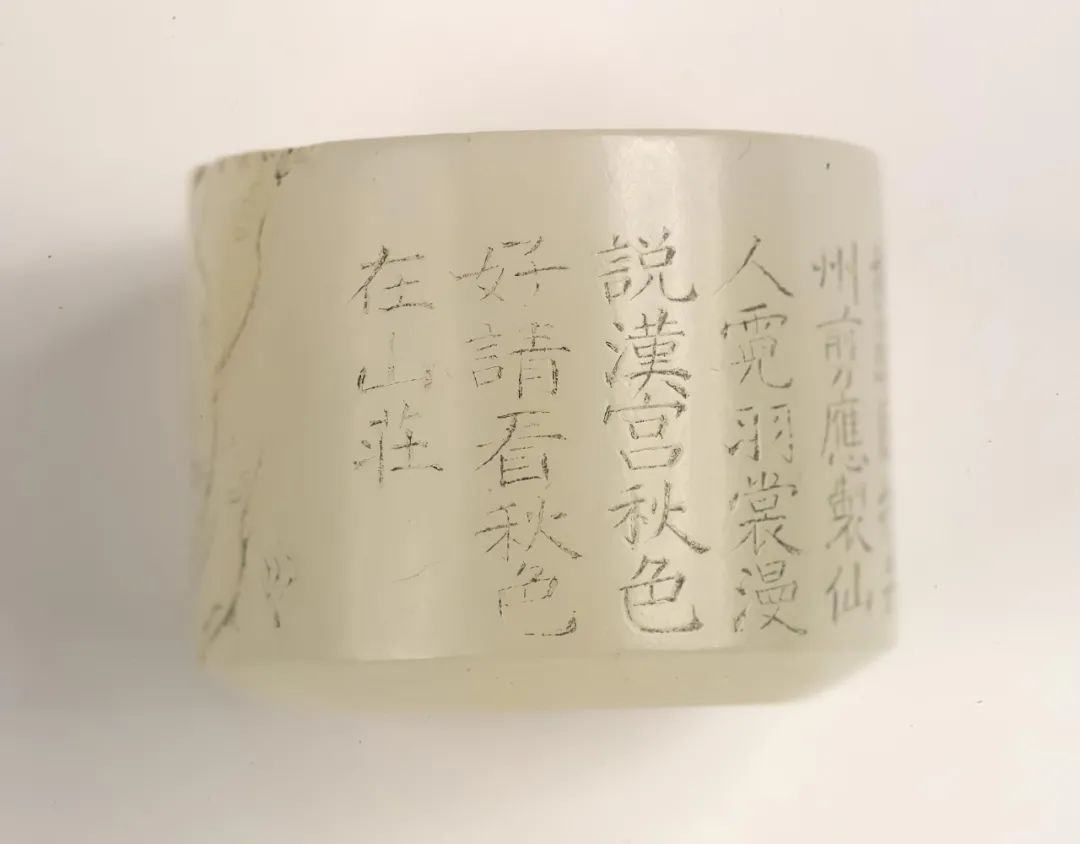 州前应應製仙
人霓羽裳漫
説漢宫秋色
好請看秋色
在山莊